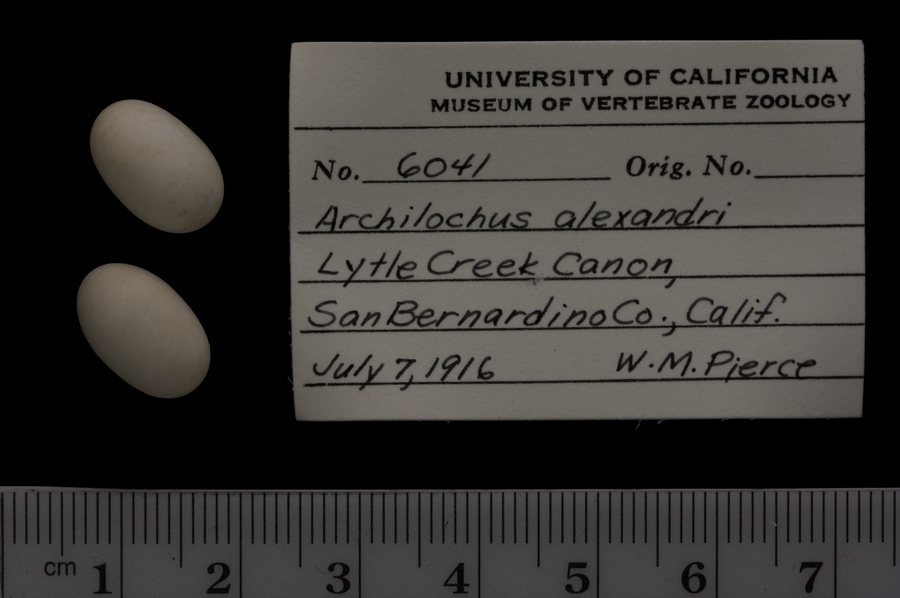 UNIVERSITY OF CALIFORNIA
MUSEUM OF VERTEBRATE ZOOLOGY
No. 6041 Orig. No.
Archilochus alexandri
Lytle Creek Canon,
San Bernardino Co., Calif.
July 7, 1916 W. M. Pierce
cm 1 2 3 4 5 6 7